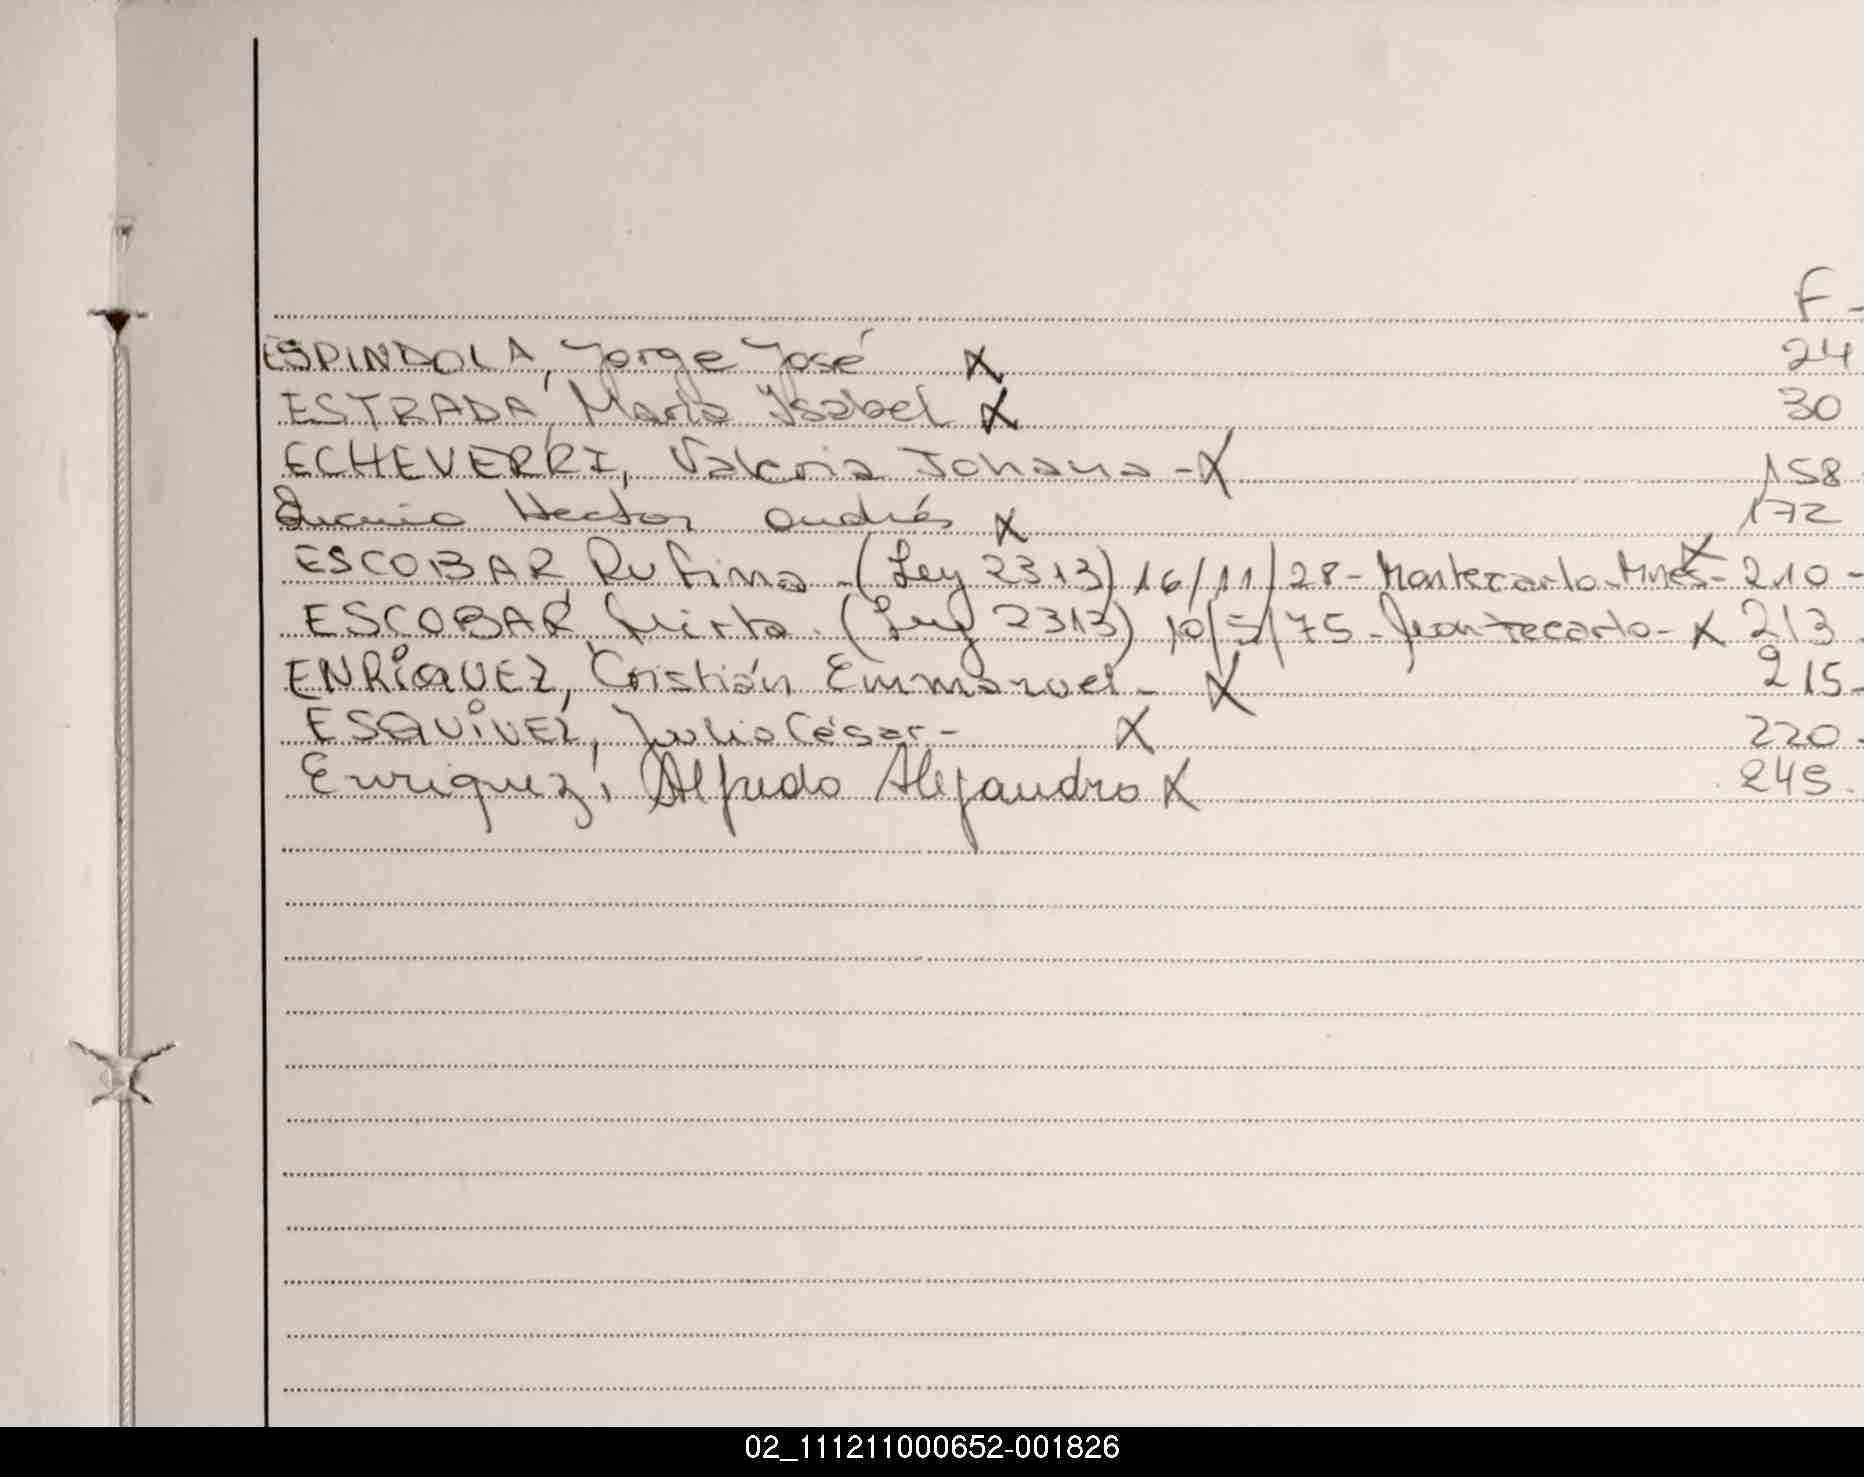 F-
ESPINDOLA, Jorge José X 24
ESTRADA, María Ysabel X 30
ECHEVERRI, Valeria Johana - X 158
Hector Andrés X 172
ESCOBAR, Rufina - (Ley 2313) 16/11/28 - Montecarlo - Mnes - X 210 -
ESCOBAR, Mirta. (Ley 2313) 10/5/75 - Montecarlo - X 213.
ENRiQUEZ, Cristián Emmanuel - X 215 -
ESQUiVEL, Julio César - X 220.
Enriquez, Alfredo Alejandro X 245.
02_111211000652-001826